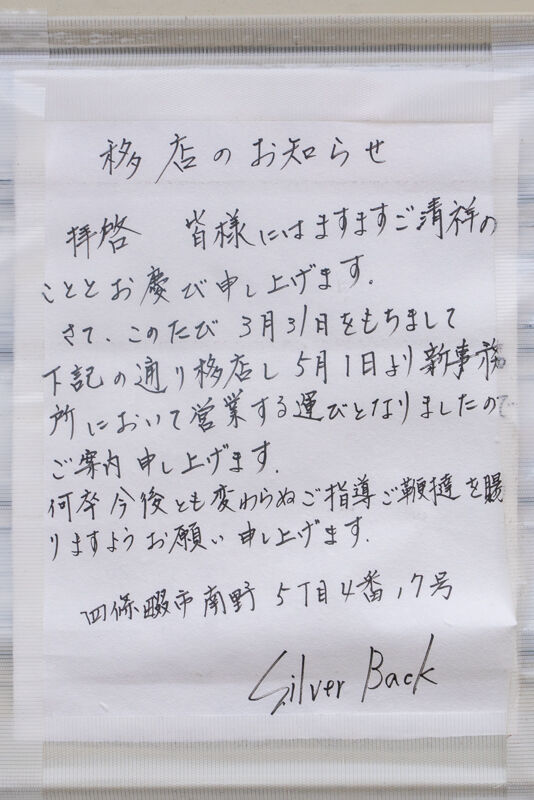 移店のお知らせ
拝啓 皆様にはますますご清祥の
こととお慶び申し上げます。
さて、このたび 3月31日をもちまして
下記の通り移店し 5月1日より新事務
所において営業する運びとなりましたので
ご案内申し上げます.
何卒今後とも変わらぬご指導ご鞭撻を賜
りますようお願い申し上げます.
四條畷市南野 5丁目4番17号
Silver Back